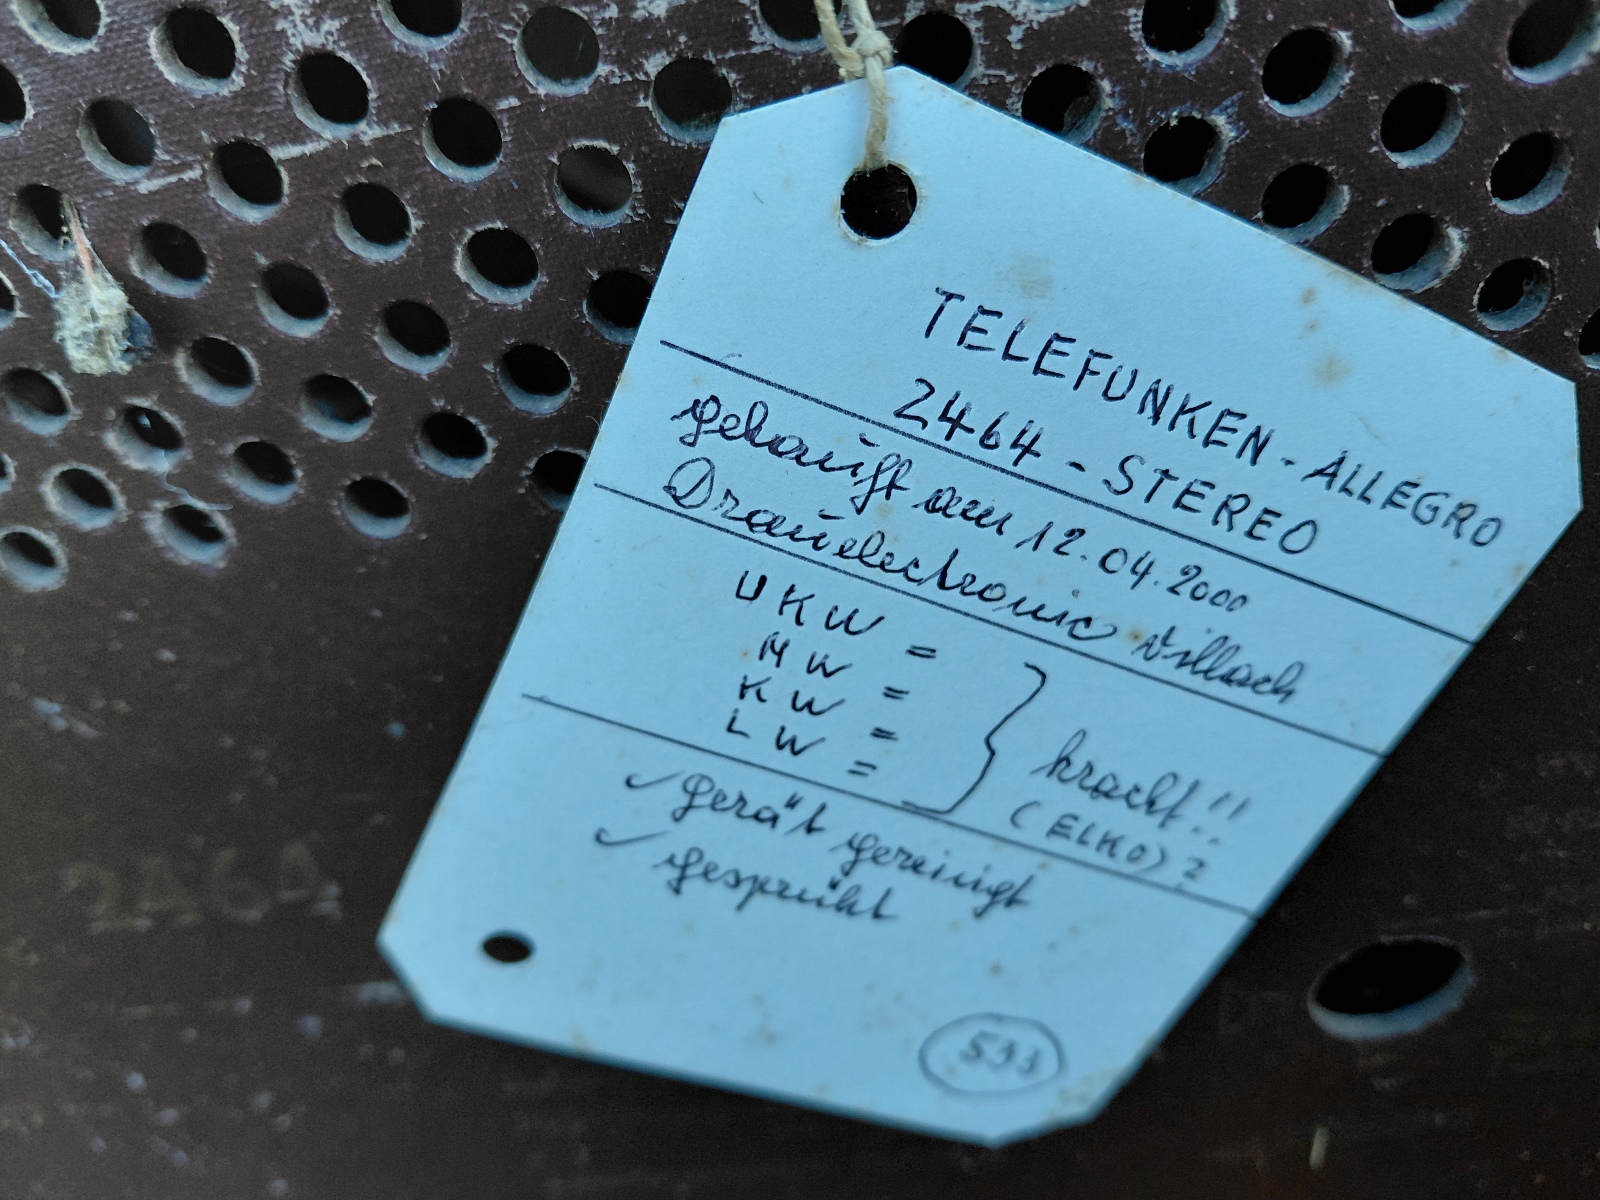 TELEFUNKEN - ALLEGRO
2464 - STEREO
gekauft am 12.04.2000
Drauelectronic Villach
UKW =
MW =
KW =
LW =
kracht!!
(ELKO)?
✓ Gerät gereinigt
✓ gesprüht
533
2464